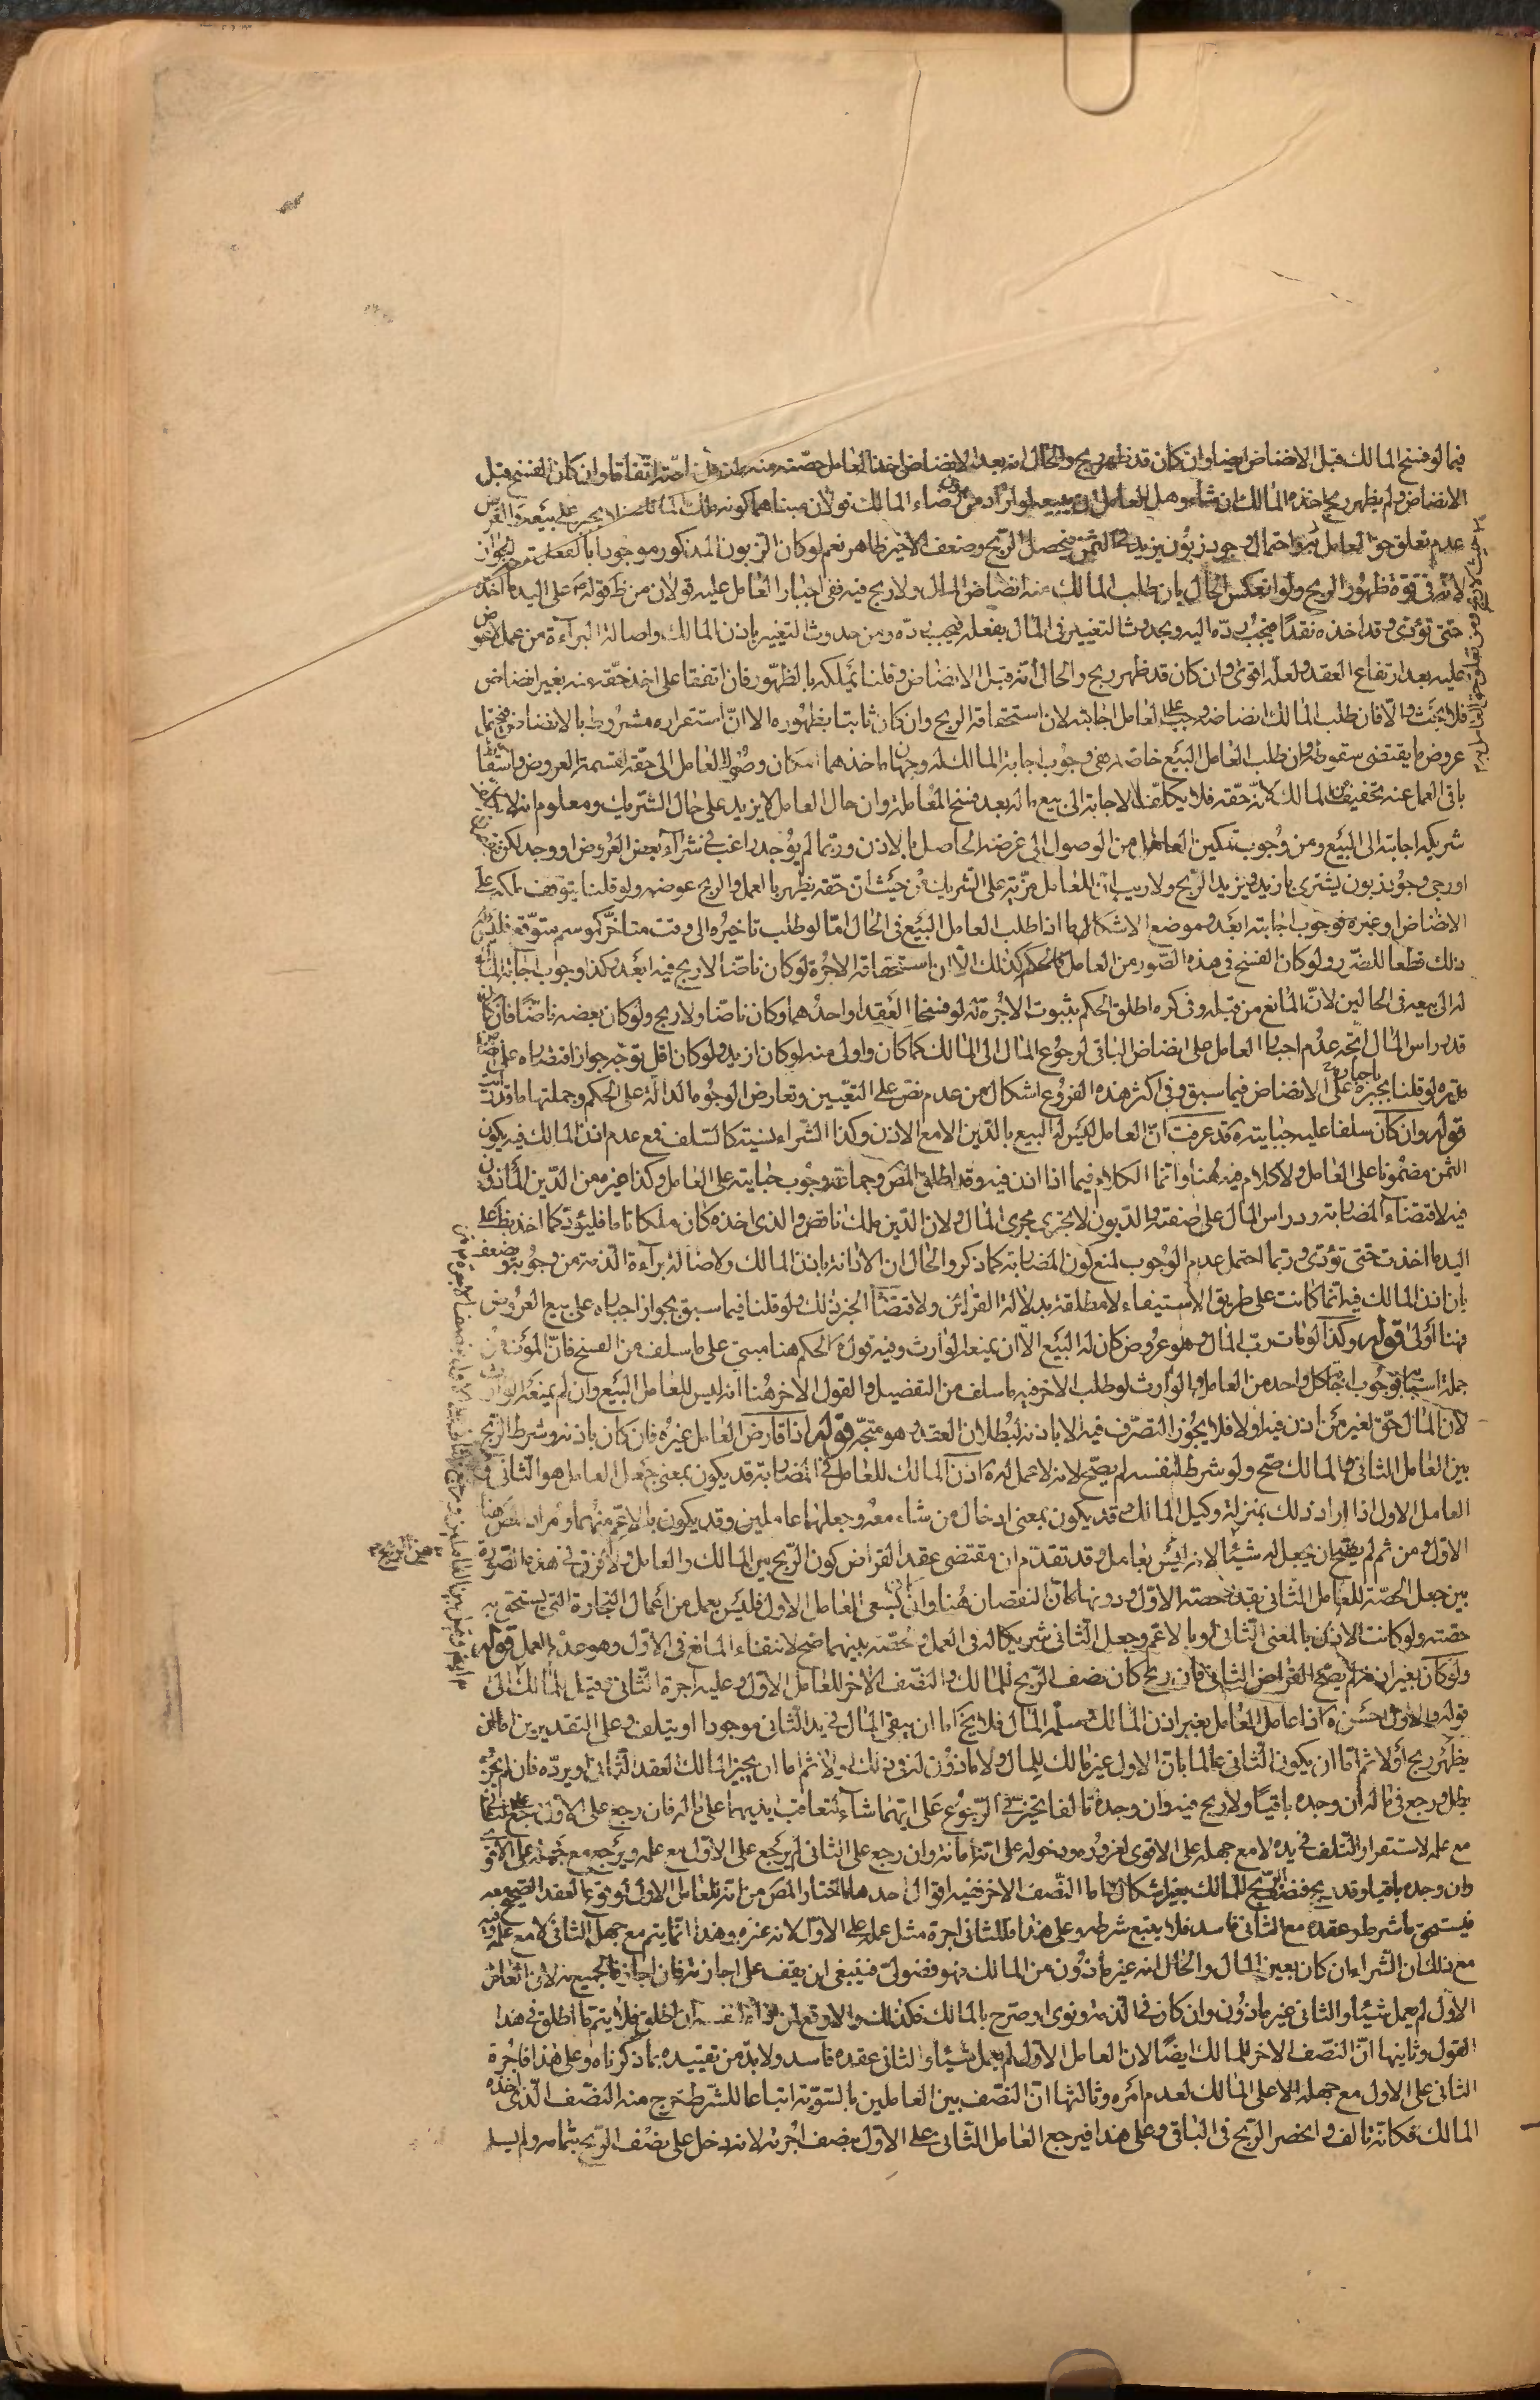 فيما لو فسخ المالك قبل الانضاض ايضا وان كان قد ظهر ربح والحال انه بعد الانضاض اخذ العامل حصته منه اتفاقا وان كان الفسخ قبل
الانضاض ولم يظهر ربح اخذه المالك ان شاء وهل للعامل ان يبيعه لو اراد من دون رضاء المالك قولان مبناهما كونه ملك المالك فلا يجبر على بيعه والغرض
عدم تعلق حق العامل به واحتمال وجود زبون يزيد في الثمن فيحصل الربح وضعف الاخير ظاهر نعم لو كان الزبون المذكور موجودا بالفعل توجه الجواز
لانه في قوة ظهور الربح ولو انعكس الحال بان طلب المالك منه انضاض المال ولا ربح فيه ففي اجبار العامل عليه قولان من ظ قوله ص على اليد ما اخذت
حتى تؤدي وقد اخذه نقدا فيجب رده اليه وبحدوث التغيير في المال بفعله فيجب رده ومن حدوث التغيير باذن المالك واصالة البرآءة من عمل لا عوض
عليه بعد ارتفاع العقد ولعله اقوى وان كان قد ظهر ربح والحال انه قبل الانضاض وقلنا يملكه بالظهور فان اتفقا على اخذ حقه منه بغير انضاض
فلا بحث والا فان طلب المالك انضاضه وجب على العامل اجابته لان استحقاقه الربح وان كان ثابتا بظهوره الا ان استقراره مشروط بالانضاض فيحتمل
عروض ما يقتضي سقوطه وان طلب العامل البيع خاصة ففي وجوب اجابة المالك له وجهان ماخذهما امكان وصول العامل الى حقه بقسمة العروض واسقاط
باقي العمل عنه تخفيف من المالك لانه حقه فلا يكلف الاجابة الى بيع ماله بعد فسخ المعاملة وان حال العامل لا يزيد على حال الشريك ومعلوم انه لا يكلف
شريكه اجابته الى البيع ومن وجوب تمكين العامل من الوصول الى غرضه الحاصل بالاذن وربما لم يوجد راغب في شرآء بعض العروض او وجد لكن بنقصان
او رجي وجود زبون يشتري بازيد فيزيد الربح ولا ريب ان للعامل مزية على الشريك من حيث ان حقه يظهر بالعمل والربح عوضه ولو قلنا بتوقف ملكه على
الانضاض او غيره فوجوب اجابته ابعد وموضع الاشكال ما اذا طلب العامل البيع في الحال اما لو طلب تاخيره الى وقت متاخر كموسم متوقع فليس له
ذلك قطعا للضرر ولو كان الفسخ في هذه الصور من العامل فالحكم كذلك الا ان استحقاقه الاجرة لو كان ناضا لا ربح فيه ابعد وكذا وجوب اجابة المالك
له الى بيعه في الحالين لان المانع من قبله وفي كره اطلق الحكم بثبوت الاجرة له لو فسخا العقد او احدهما وكان ناضا ولا ربح ولو كان بعضه ناضا فان كان
قدر راس المال اتجه عدم اجبار العامل على انضاض الباقي لرجوع المال الى المالك كما كان واولى منه لو كان ازيد ولو كان اقل توجه جواز اقتصاره على انضاض
ما يتمه لو قلنا بجبره على الانضاض فيما سبق وفي اكثر هذه الفروع اشكال من عدم نص على التعيين وتعارض الوجوه الدالة على الحكم وجملتها ما قدمناه
قوله وان كان سلفا عليه جبايته ه قد عرفت ان العامل ليس له البيع بالدين الا مع الاذن وكذا الشراء نسيئة كالسلف فمع عدم اذن المالك فيه يكون
الثمن مضمونا على العامل ولا كلام فيه هنا وانما الكلام فيما اذا اذن فيه وقد اطلق المص وجماعة وجوب جبايته على العامل وكذا غيره من الدين الماذون
فيه لاقتضآء المضاربة رد راس المال على صفته والديون لا تجري مجرى المال ولان الدين ملك ناقص والذي اخذه كان ملكا تاما فليؤد كما اخذ لظ على
اليد ما اخذت حتى تؤدي وربما احتمل عدم الوجوب لمنع كون المضاربة كما ذكر والحال ان الادانة باذن المالك ولاصالة برآءة الذمة من وجوبه وضعف
بان اذن المالك فيه انما كانت على طريق الاستيفاء لا مطلقة بدلالة القرائن ولاقتضآء الخبر ذلك ولو قلنا فيما سبق بجواز اجباره على بيع العروض
فهنا اولى قوله وكذا لو مات رب المال وهو عروض كان له البيع الا ان يمنعه الوارث وفيه قول ه الحكم هنا مبني على ما سلف من الفسخ فان الموت من
جملة اسبابه فوجوب اجابة كل واحد من العامل والوارث لو طلب الاخر فيه ما سلف من التفصيل والقول الاخر هنا انه ليس للعامل البيع وان لم يمنعه الوارث
لان المال حق لغير من اذن فيه اولا فلا يجوز التصرف فيه الا باذنه لبطلان العقد وهو متجه قوله اذا قارض العامل غيره فان كان باذنه وشرط الربح
بين العامل الثاني والمالك صح ولو شرط لنفسه لم يصح لانه لا عمل له ه اذن المالك للعامل في المضاربة قد يكون بمعنى جعل العامل هو الثاني و
العامل الاول اذا اراد ذلك بمنزلة وكيل المالك وقد يكون بمعنى ادخال من شاء معه وجعلهما عاملين وقد يكون بالاعم منهما ومراد المص هنا
الاول ومن ثم لم يصح ان يجعل له شيئا لانه ليس بعامل وقد تقدم ان مقتضى عقد القراض كون الربح بين المالك والعامل ولا فرق في هذه الصورة
بين جعل الحصة للعامل الثاني بقدر حصة الاول ودونها كان النقصان هنا وان يسعى العامل الاول فليس بعمل من اعمال التجارة التي يستحق به
حصته ولو كانت الاذن بالمعنى الثاني او بالاعم وجعل الثاني شريكا له في العمل والحصة بينهما صح لانتفاء المانع في الاول وهو عدم العمل قوله
ولو كان بغير اذنه لم يصح القراض الثاني فان ربح كان نصف الربح للمالك والنصف الاخر للعامل الاول وعليه اجرة الثاني وقيل للمالك الى
قوله والاول احسن ه اذا عامل العامل بغير اذن المالك وسلمه المال فلا يخ اما ان يبقى المال في يد الثاني موجودا او يتلف وعلى التقديرين اما ان
يظهر ربح اولا ثم اما ان يكون الثاني عالما بان الاول غير مالك للمال ولا ماذون له في ذلك اولا ثم اما ان يجيز المالك العقد الثاني او يرده فان لم يجزه
بطل ورجع في ماله ان وجده باقيا ولا ربح فيه وان وجده تالفا تخير في الرجوع على ايهما شآء لتعاقب ايديهما على ماله فان رجع على الاول رجع على الثاني
مع علمه لاستقرار التلف في يده لا مع جهله على الاقوى لغروره ودخوله على انه امانة وان رجع على الثاني لم يرجع على الاول مع علمه ويرجع مع جهله على الاقوى
وان وجده باقيا وقد ربح فنصف الربح للمالك بغير اشكال واما النصف الاخر ففيه اقوال احدها ما اختاره المص من انه للعامل الاول لوقوع العقد الصحيح معه
فيستحق ما شرط وعقده مع الثاني فاسد فلا يتبع شرطه وعلى هذا فللثاني اجرة مثل عمله على الاول لانه غره وهذا انما يتم مع جهل الثاني لا مع علمه وفيه
مع ذلك ان الشراء ان كان بعين المال والحال انه غير ماذون من المالك فهو فضولي فينبغي ان يقف على اجازته فان اجاز فالجميع له لان العامل
الاول لم يعمل شيئا والثاني غير ماذون وان كان في الذمة ونوى او صرح بالمالك فكذلك والا وقع لمن نواه او لنفسه ان اطلق فلا يتم ما اطلق في هذا
القول وثانيها ان النصف الاخر للمالك ايضا لان العامل الاول لم يعمل شيئا والثاني عقده فاسد ولا بد من تقييده بما ذكرناه وعلى هذا فاجرة
الثاني على الاول مع جهله لا على المالك لعدم امره وثالثها ان النصف بين العاملين بالسوية اتباعا للشرط خرج منه النصف الذي اخذه
المالك فكانه تالف وانحصر الربح في الباقي وعلى هذا فيرجع العامل الثاني على الاول بنصف اجرته لانه دخل على نصف الربح بتمامه ولم يسلم